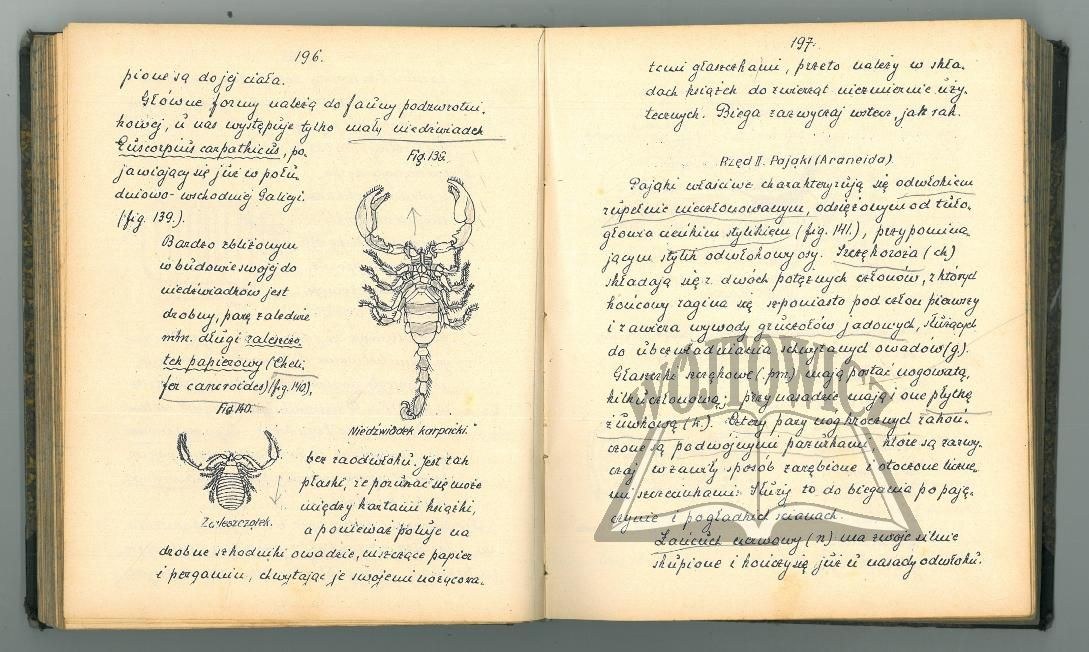 196.
pione są do jej ciała.
Główne formy należą do fauny podzwrotni,
kowej, u nas występuje tylko mały niedźwiadek
Euscorpius carpathicus, po,
jawiający się już w połu,
dniowo-wschodniej Galicyi.
(fig. 139.).
Fig. 139.
Bardzo zbliżonym
w budowie swojej do
niedźwiadków jest
drobny, parę zaledwie
m/m. długi zaleszczo,
tek papierowy (Cheli,
fer cancroides) (fig. 140),
Fig. 140.
Niedźwiadek karpacki.
Zaleszczotek.
bez zaodwłoku. Jest tak
płaski, że poruszać się może
między kartami książki,
a ponieważ poluje na
drobne szkodniki owadzie, niszczące papier
i pergamin, chwytając je swojemi nożycowa,
197.
temi głaszczkami, przeto należy w skła,
dach książek do zwierząt niezmiernie uży,
tecznych. Biega zazwyczaj wstecz, jak rak.
Rzęd II. Pająki (Araneida).
Pająki właściwe charakteryzują się odwłokiem
zupełnie nieczłonowanym, odsiężonym od tuło,
głowia cienkim stylikiem (fig. 141.), przypomina,
jącym stylik odwłokowy osy. Szczękoroża (ch)
składają się z dwóch potężnych członów, z których
końcowy zagina się szponiasto pod człon pierwszy
i zawiera wywody gruczołów jadowych, służących
do ubezwładniania schwytanych owadów (g).
Głaszczki szczękowe (pm) mają postać nogowatą,
kilkuczłonową; przy nasadzie mają i one płytkę
żuwkową (k). Cztery pary nóg krocznych zakoń,
czone są podwójnymi pazurkami, które są zazwy,
czaj w zawiły sposób zazębione i otoczone liczne,
mi szczecinkami. Służy to do biegania po paję,
czynie i po gładkich ścianach.
Łańcuch nerwowy (n) ma zwoje silnie
skupione i kończy się już u nasady odwłoku.
WÓJTOWICZ